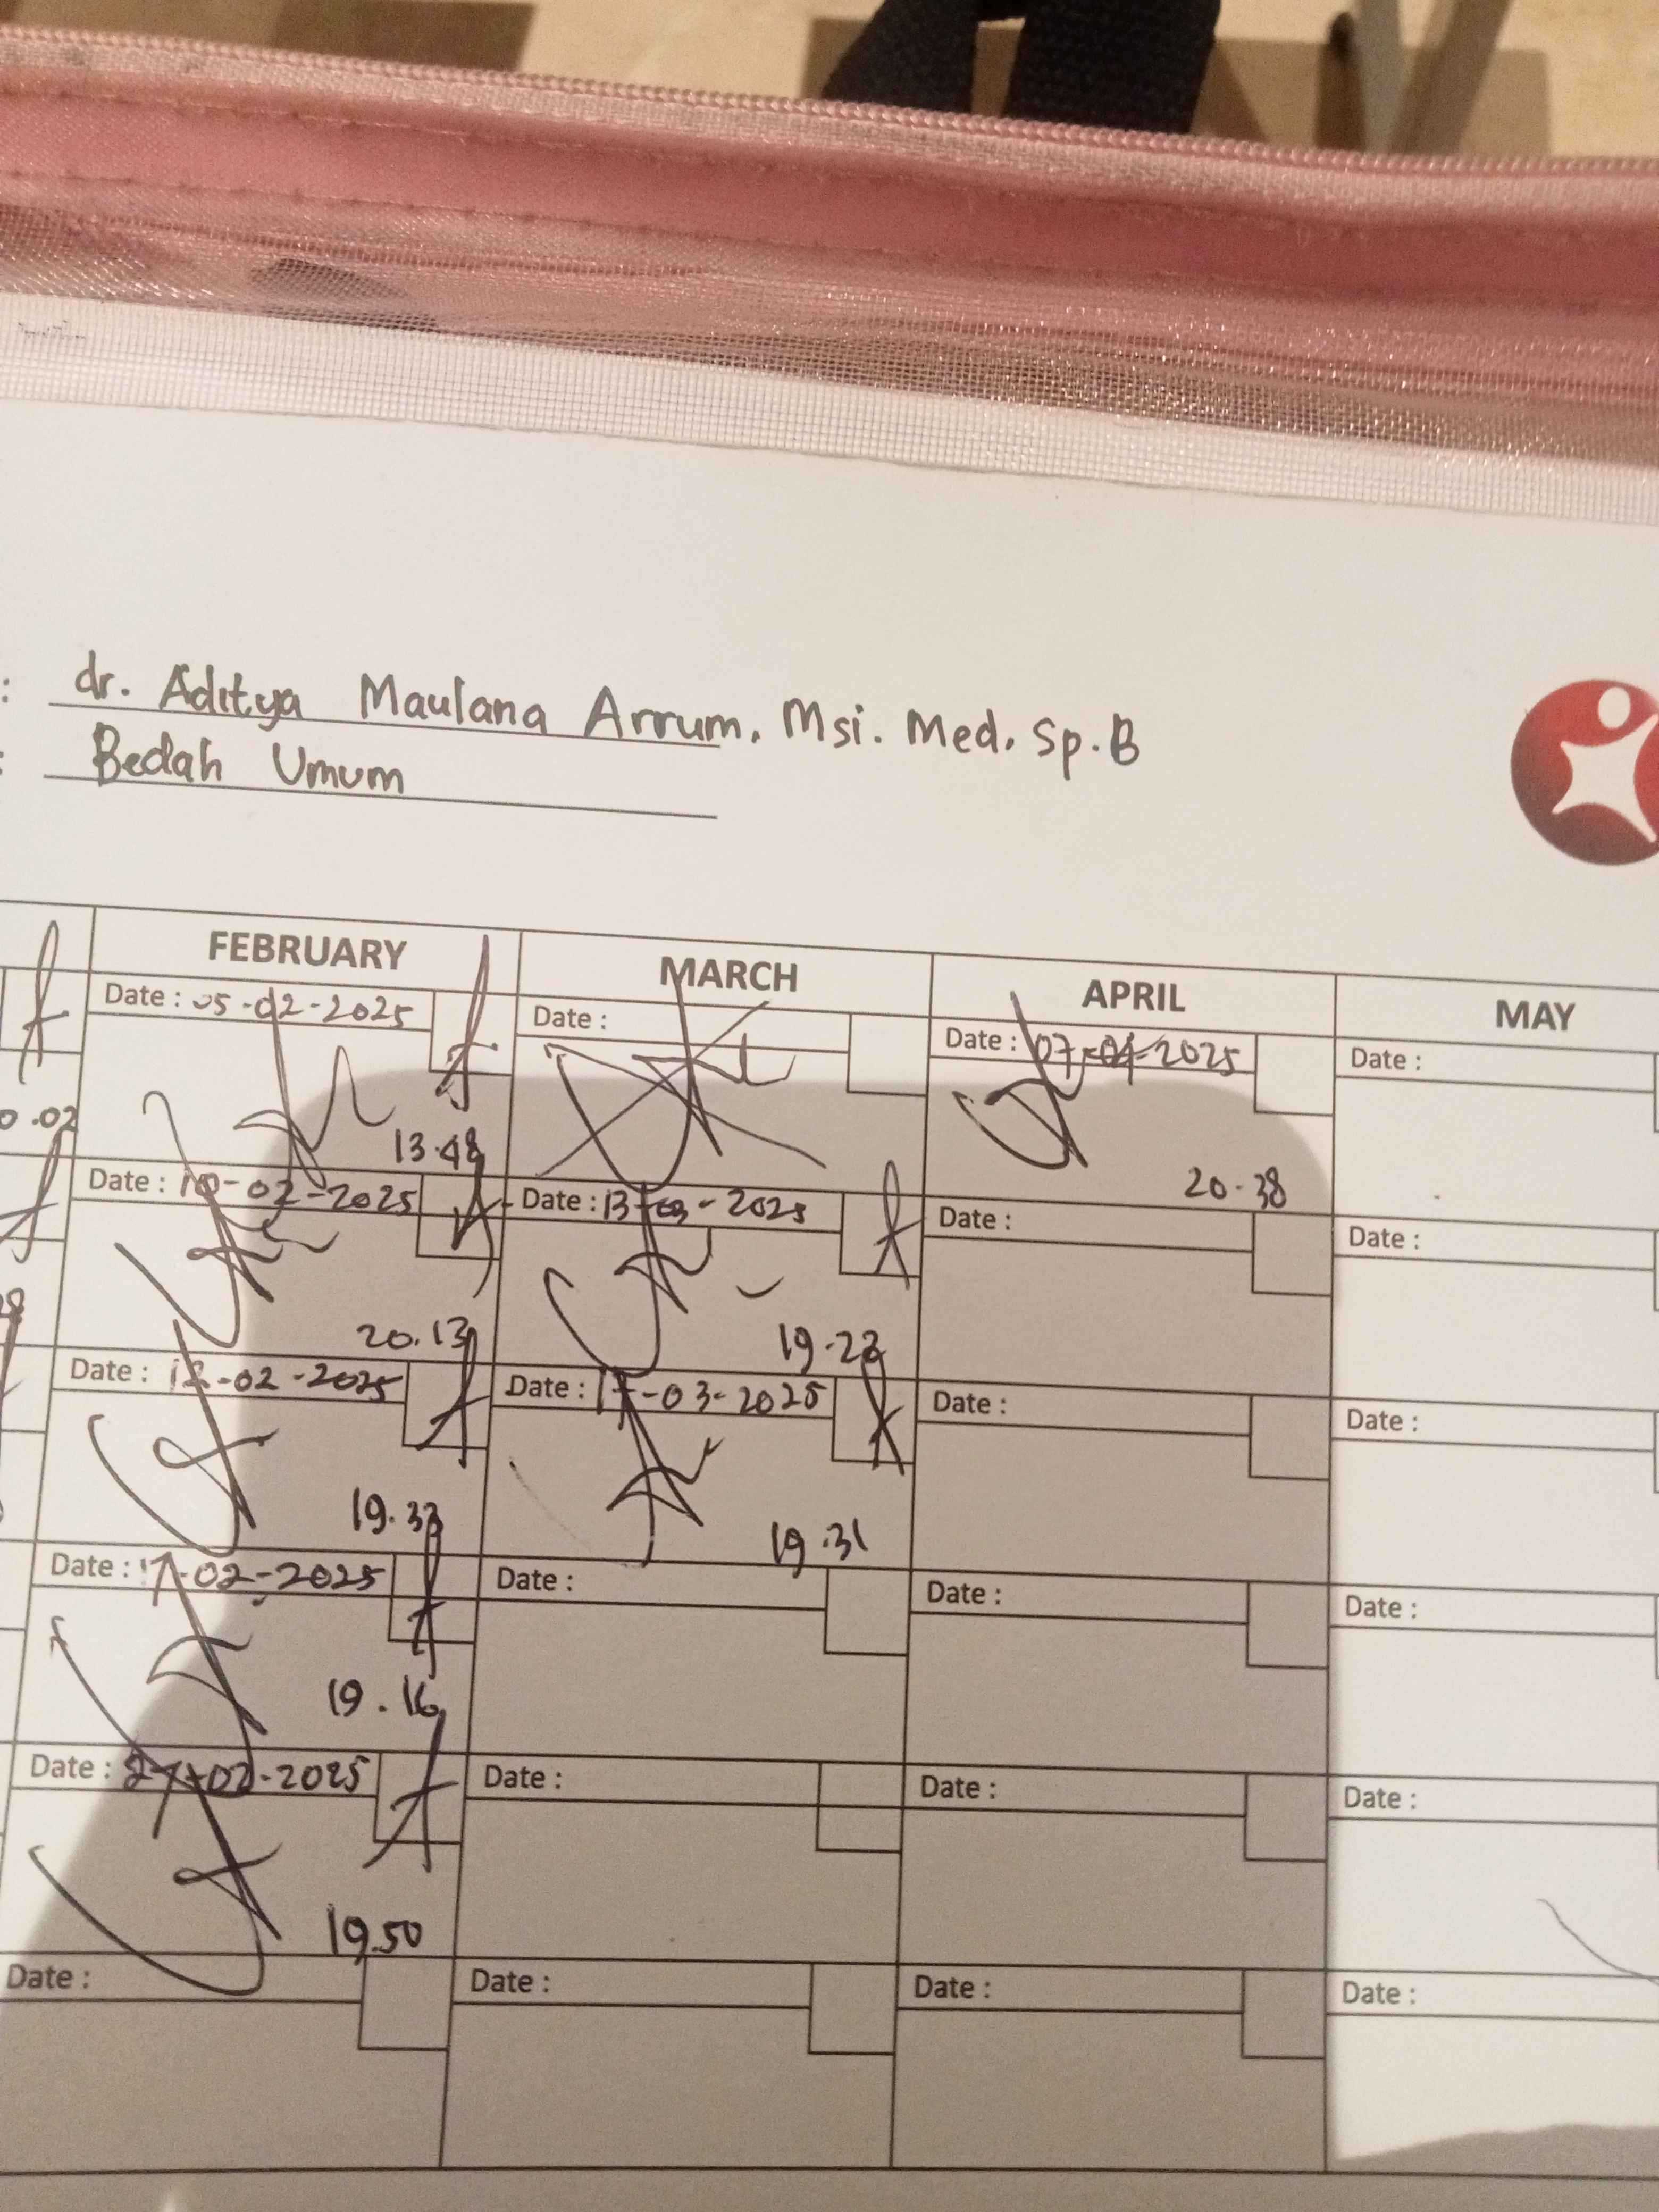 : dr. Aditya Maulana Arrum, Msi. Med, Sp.B
: Bedah Umum
FEBRUARY MARCH APRIL MAY
Date : 05-02-2025 Date : Date : 07-04-2025 Date :
13.48 20.38
Date : 10-02-2025 Date : 13-03-2025 Date : Date :
20.13 19.23
Date : 12-02-2025 Date : 17-03-2025 Date : Date :
19.33 19.31
Date : 17-02-2025 Date : Date : Date :
19.16
Date : 27-02-2025 Date : Date : Date :
19.50
Date : Date : Date : Date :